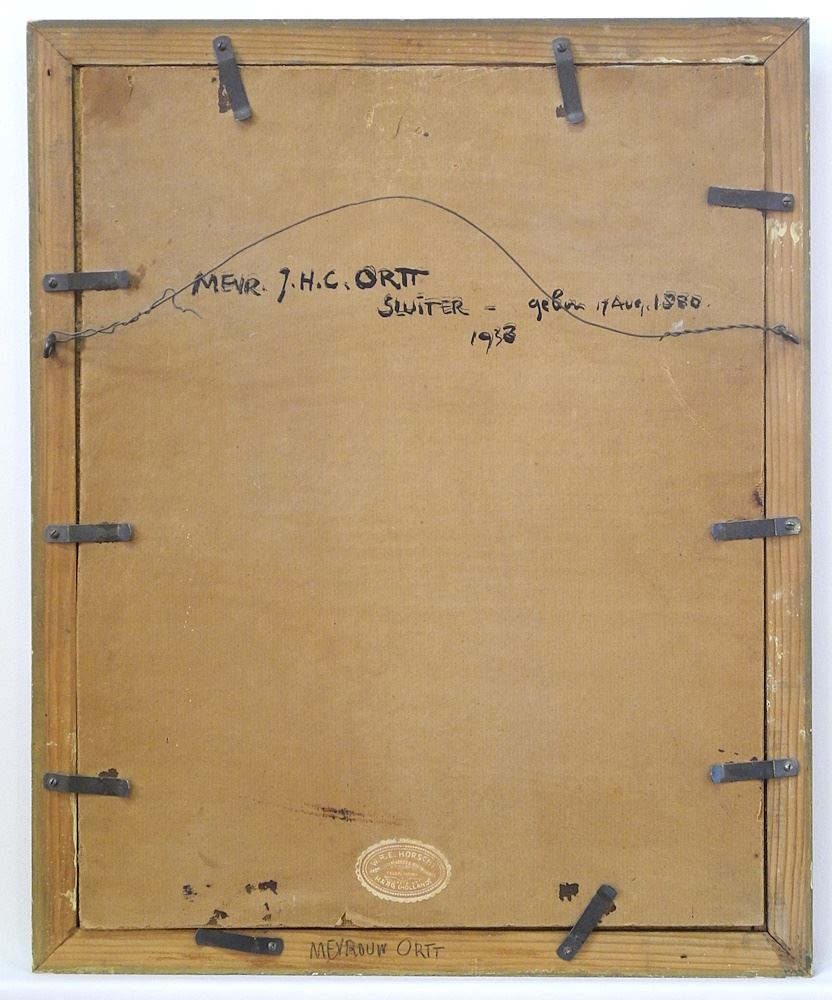 MEVR. J.H.C. ORTT
SLUITER - geboren 17 Aug. 1880.
1938
W.P.E. HORSCH
HAAG (HOLLANDE)
MEVROUW ORTT